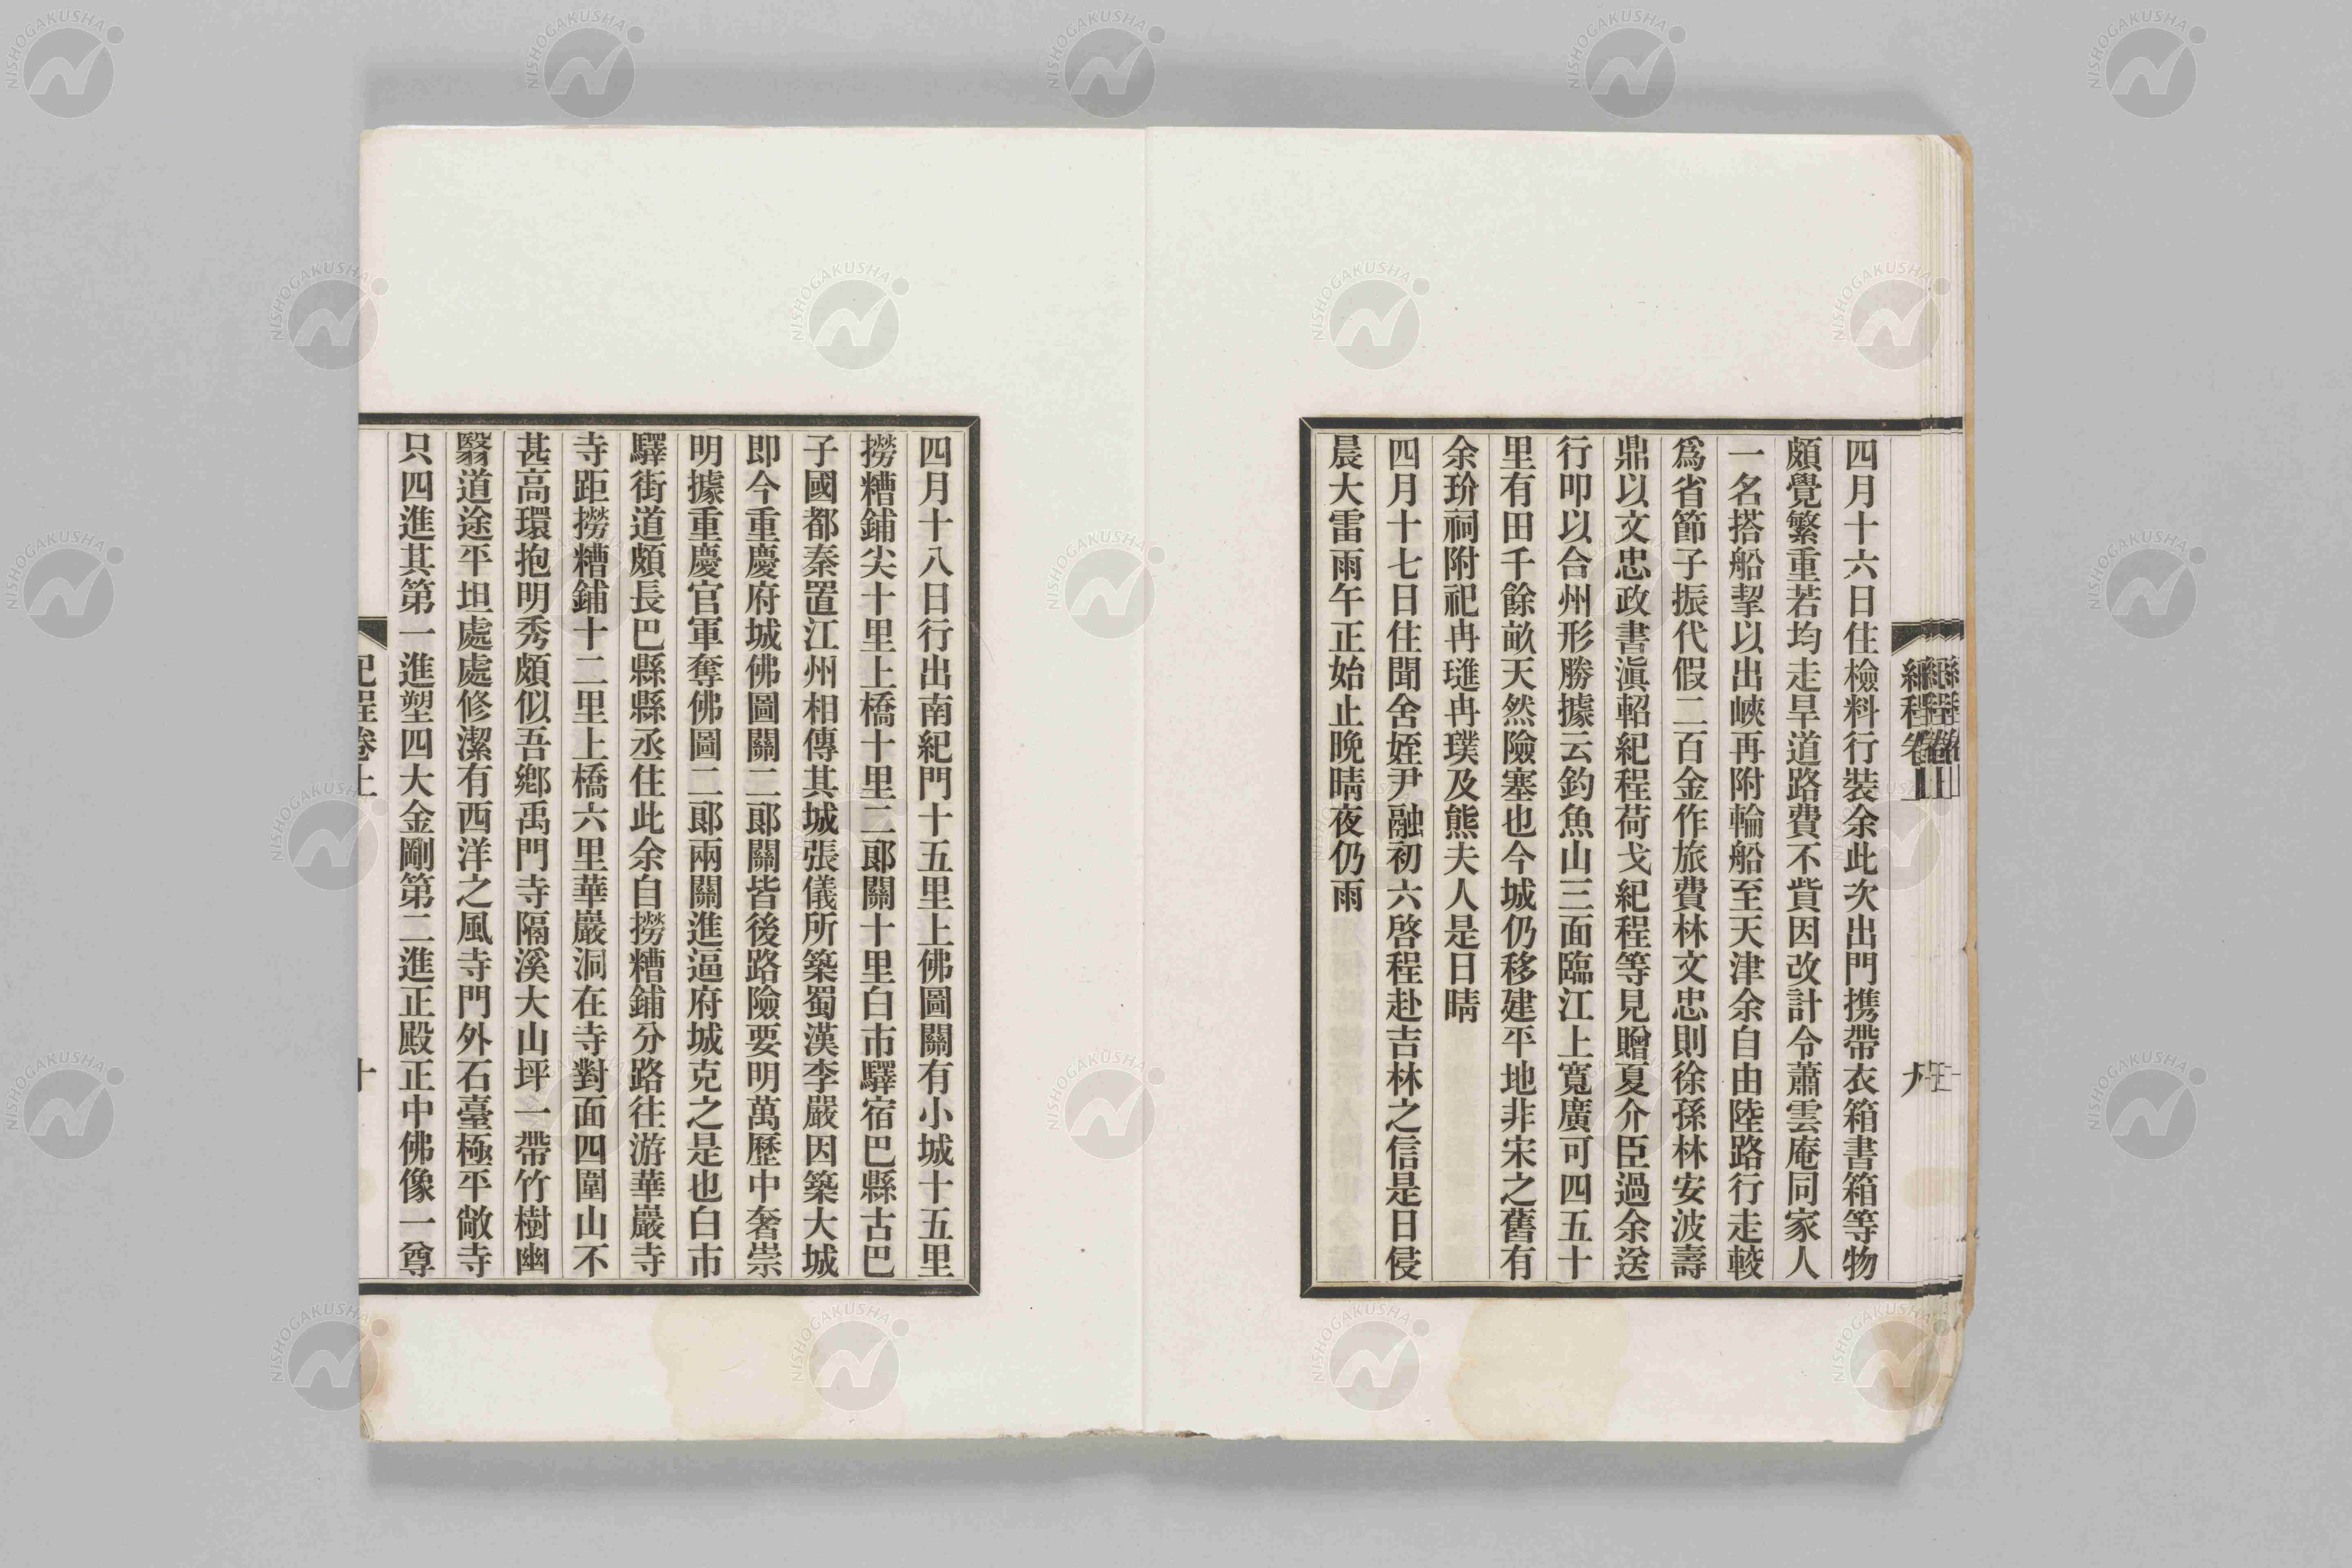 四月十六日住檢料行裝余此次出門携帶衣箱書箱等物
頗覺繁重若均走旱道路費不貲因改計令蕭雲庵同家人
一名搭船挈以出峽再附輪船至天津余自由陸路行走較
爲省節子振代假二百金作旅費林文忠則徐孫林安波壽
鼎以文忠政書滇軺紀程荷戈紀程等見贈夏介臣過余送
行叩以合州形勝據云釣魚山三面臨江上寬廣可四五十
里有田千餘畝天然險塞也今城仍移建平地非宋之舊有
余玠祠附祀冉璡冉璞及熊夫人是日晴
四月十七日住聞舍姪尹融初六啓程赴吉林之信是日侵
晨大雷雨午正始止晚晴夜仍雨
四月十八日行出南紀門十五里上佛圖關有小城十五里
撈糟鋪尖十里上橋十里二郞關十里白市驛宿巴縣古巴
子國都秦置江州相傳其城張儀所築蜀漢李嚴因築大城
即今重慶府城佛圖關二郞關皆後路險要明萬歷中奢崇
明據重慶官軍奪佛圖二郞兩關進逼府城克之是也白市
驛街道頗長巴縣縣丞住此余自撈糟鋪分路往游華巖寺
寺距撈糟鋪十二里上橋六里華巖洞在寺對面四圍山不
甚高環抱明秀頗似吾鄕禹門寺隔溪大山坪一帶竹樹幽
翳道途平坦處處修潔有西洋之風寺門外石臺極平敞寺
只四進其第一進塑四大金剛第二進正殿正中佛像一尊
紀程卷上
十
NISHOGAKUSHA